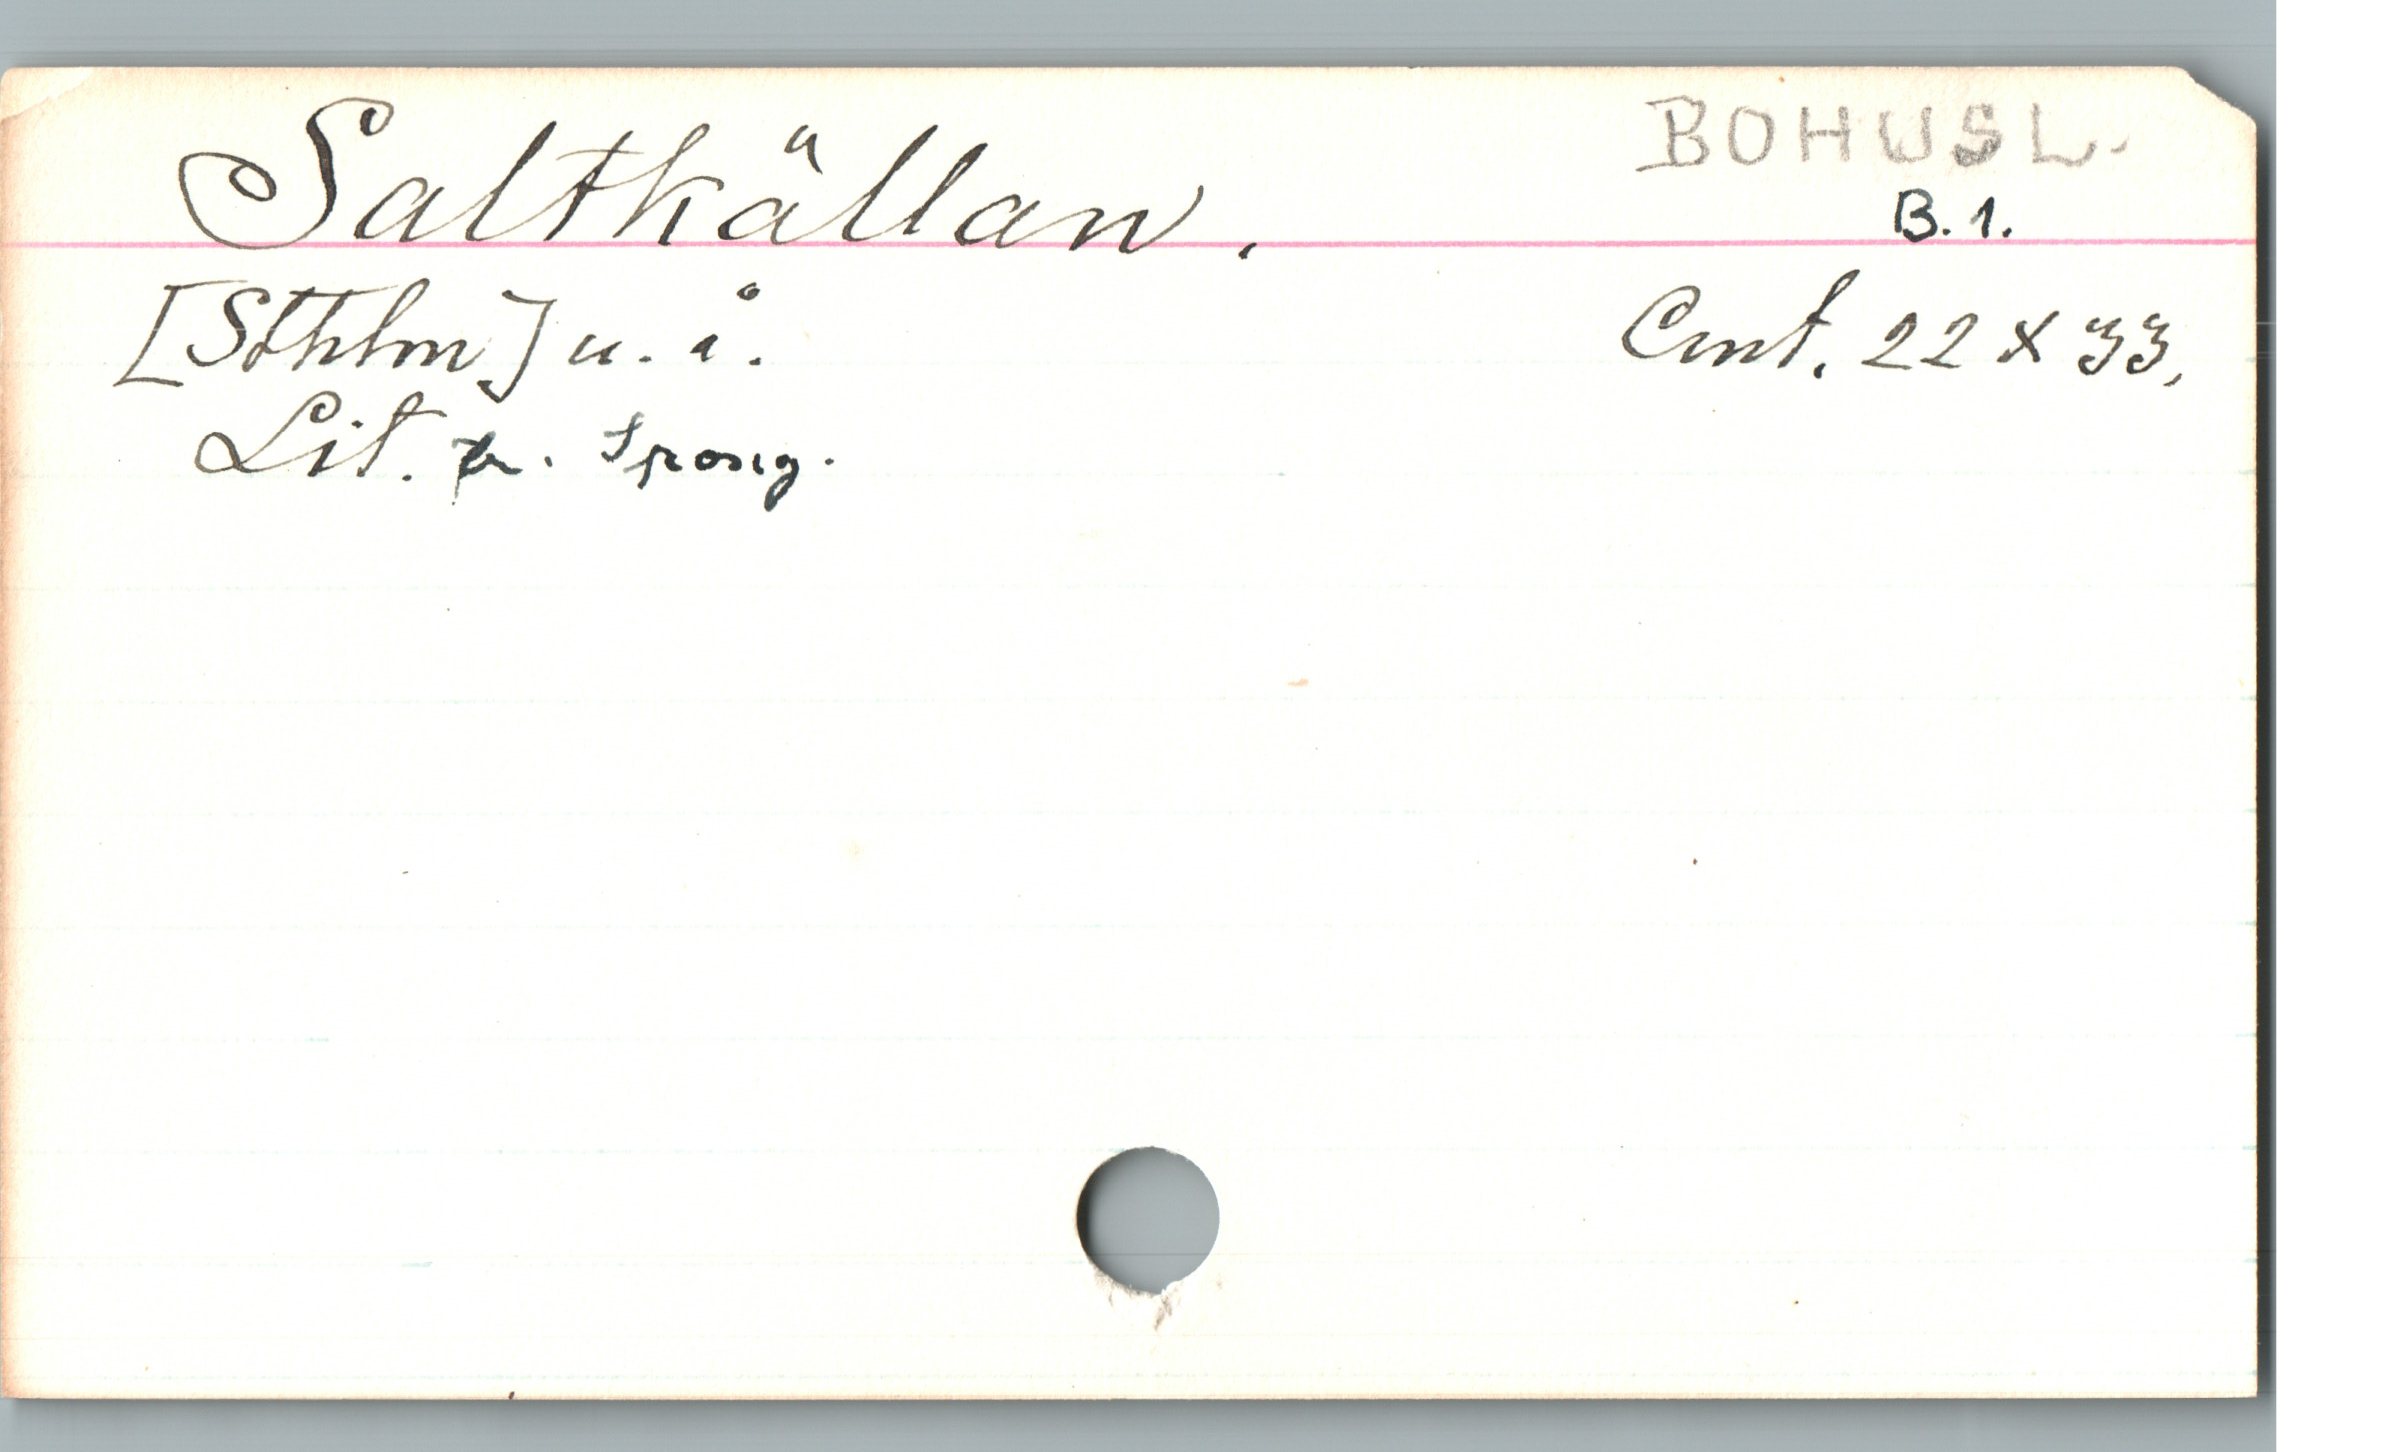 Saltkällan.
BOHUSL.
B. 1.
[Sthlm] u. å.
Cmt. 22 x 33.
Lit. Spong.